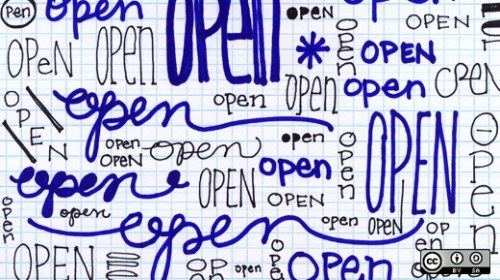 Pen
open
OPEN
OPEN
open
OPEN
open
open
OPEN
open
OPEN
OPEN
open
open
open
open
OPEN
open
open
OPEN
open
open
open
open
OPEN
OPEN
OPEN
open
OPEN
open
open
open
open
open
OPEN
open
open
open
open
cc BY SA